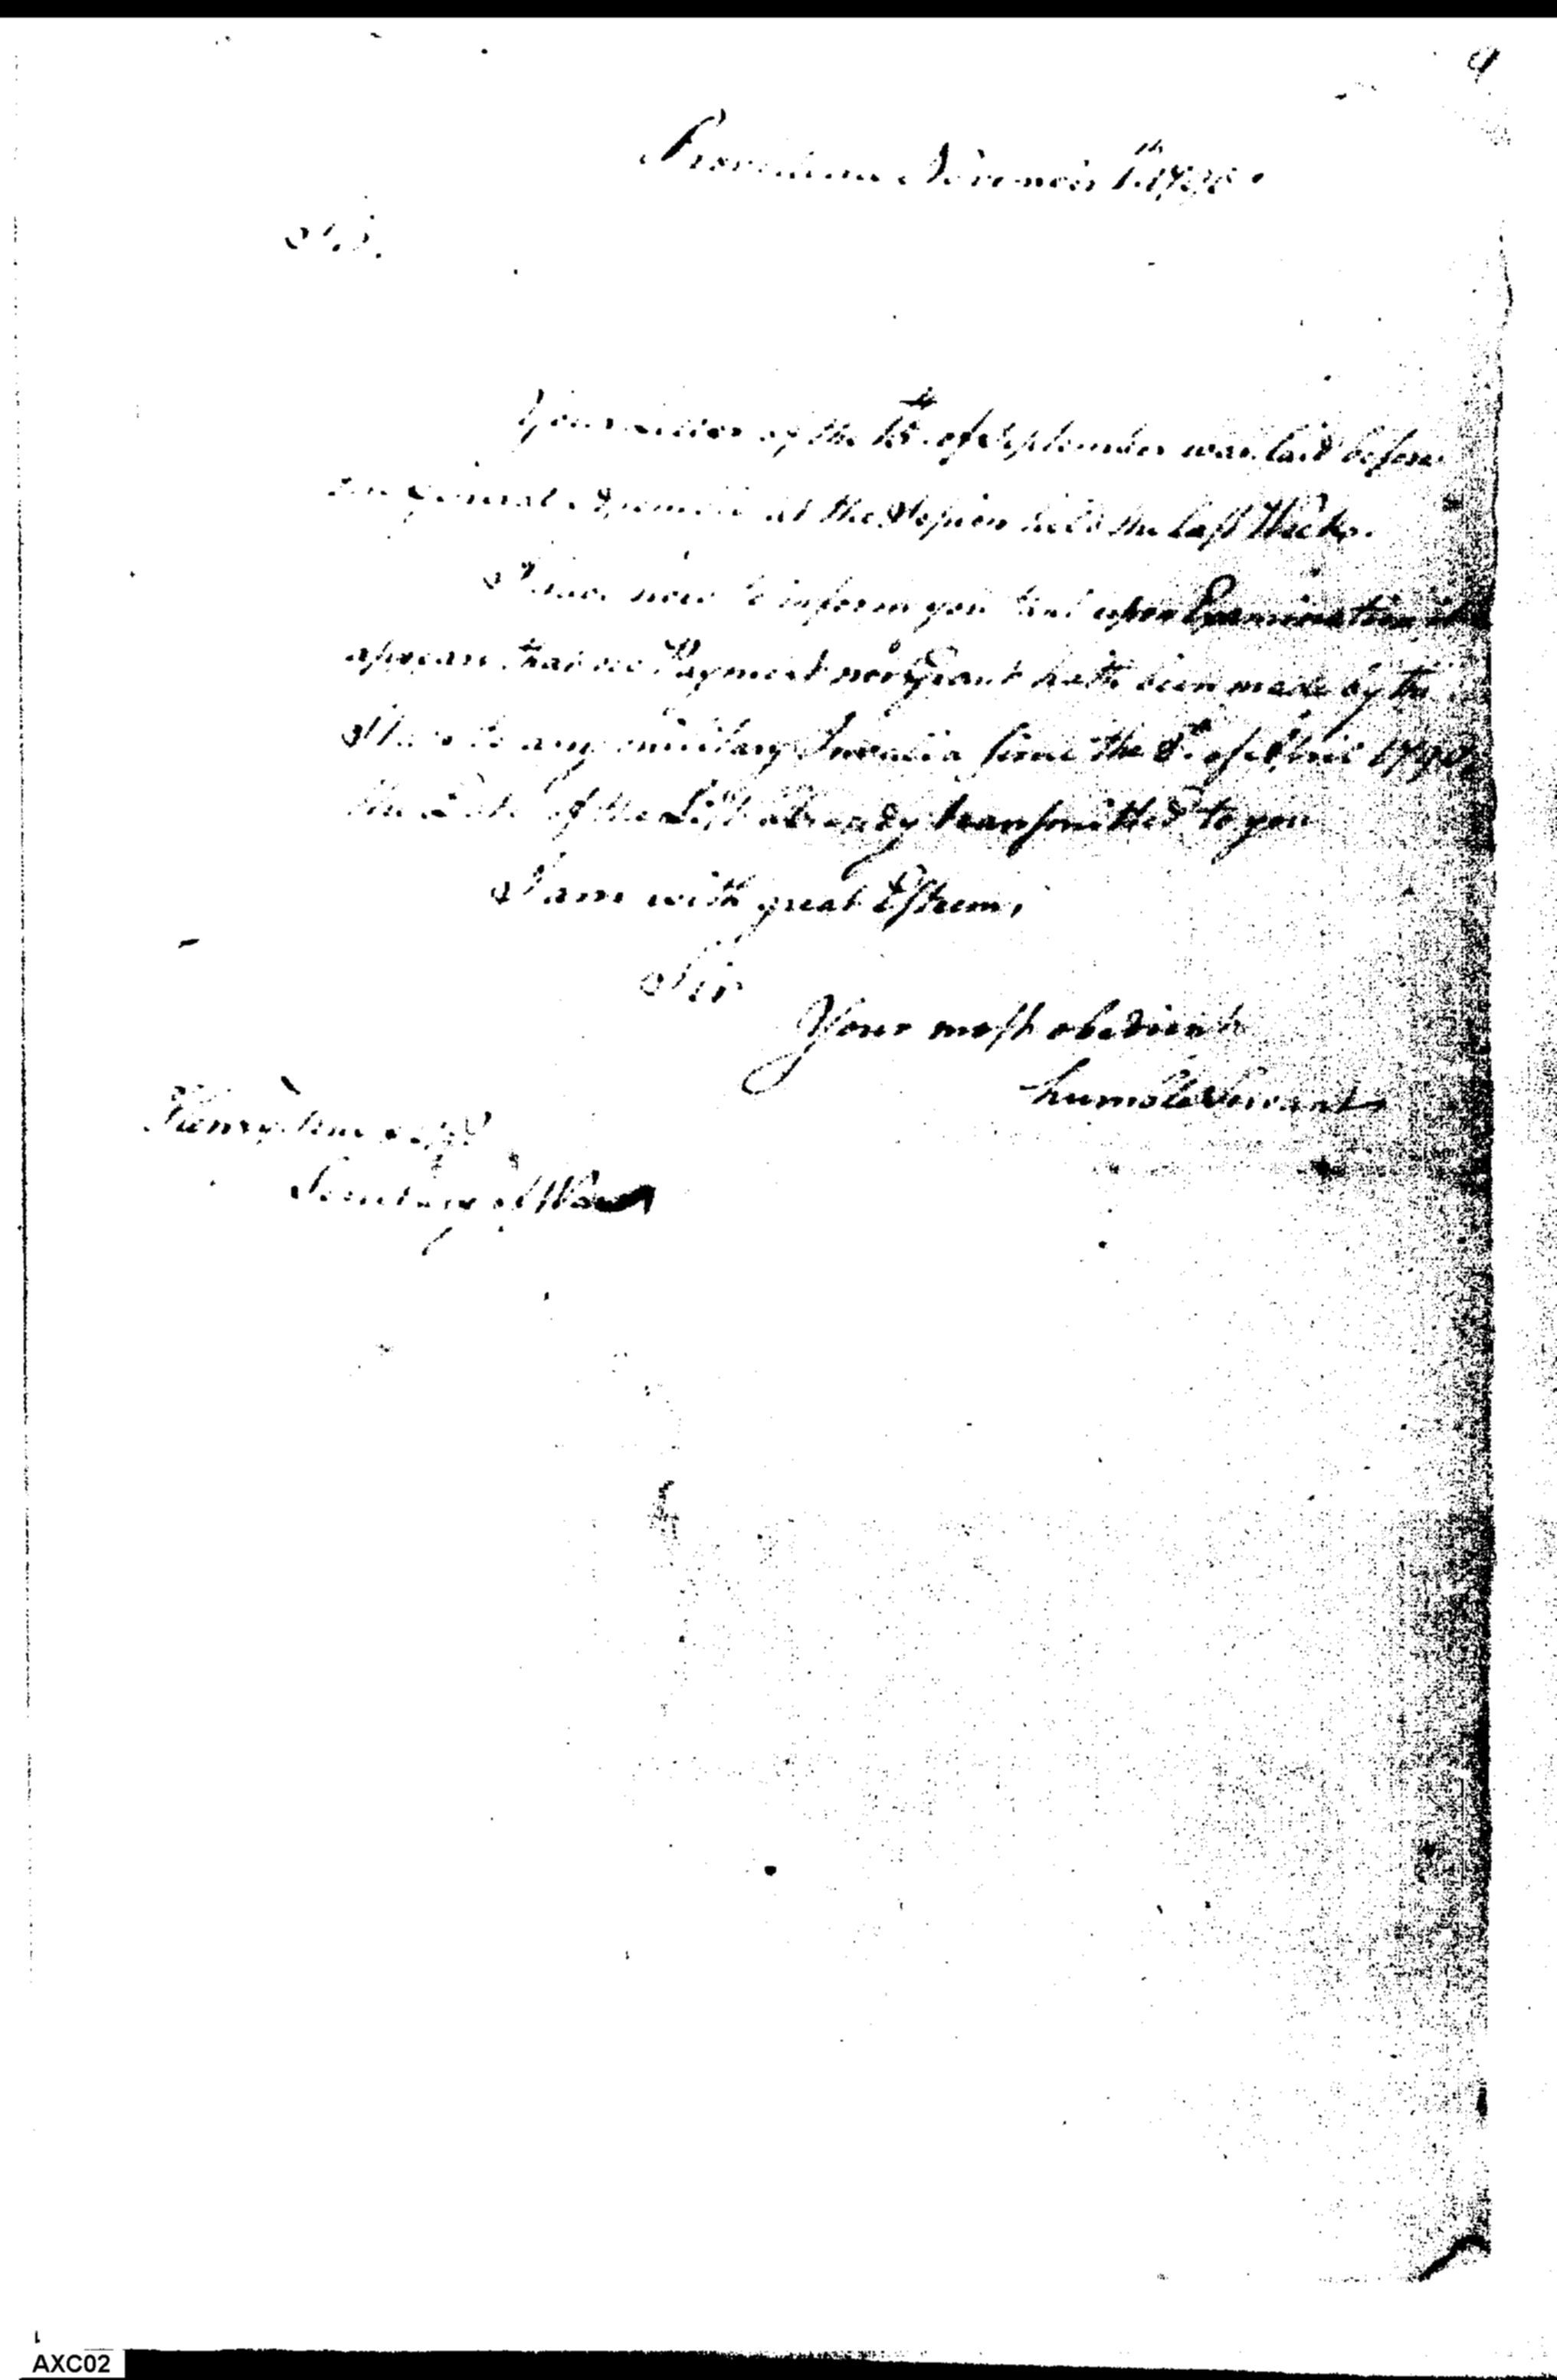 Providence November
Sir.
Your Letter of the 15th of September was laid before
the General Assembly at the Session held the last Week.
I have now to inform you that upon Examination it
appears that no Payment nor Grant hath been made by the
State to any military Invalid since the 8th of April 1790,
the Date of the List already transmitted to you
I am with great Esteem,
Sir
Your most obedient
humble Servant
Henry Knox Esqr
Secretary of War
AXC02